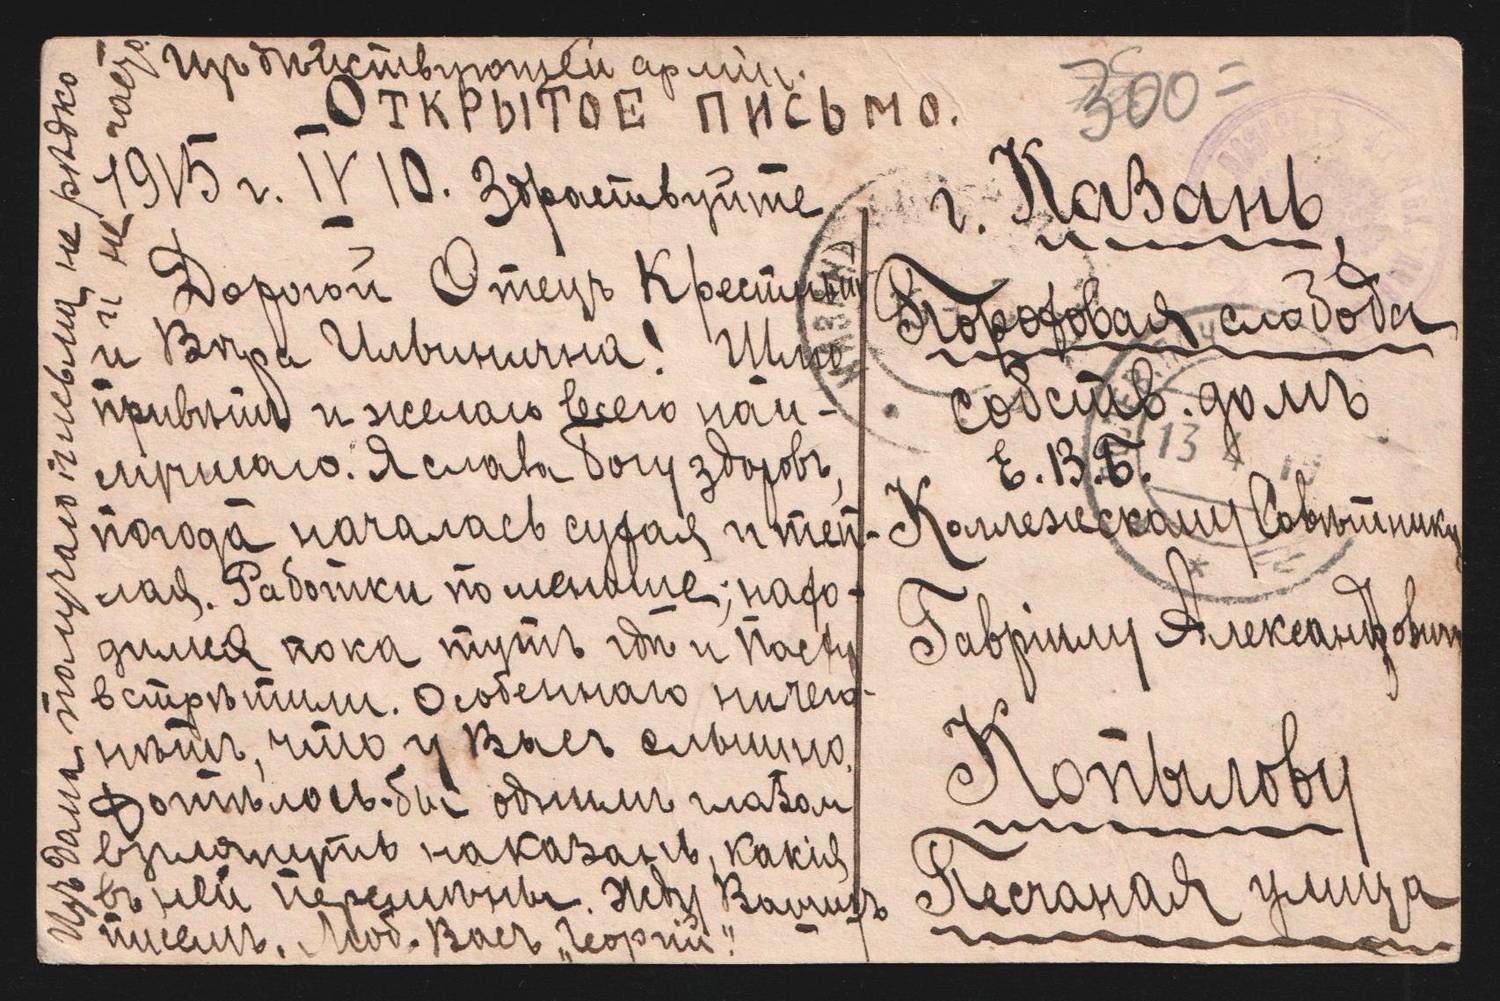 Изъ дѣйствующей арміи.
Открытое письмо.
300=
1915 г. IV 10. Здраствуйте
Дорогой Отецъ Крестный
и Вѣра Ильинична! Шлю
привѣтъ и желаю всего наи-
лучшаго. Я слава Богу здоровъ,
погода началась сухая и теп-
лая. Работки поменьше; нахо-
димся пока тутъ гдѣ и Пасху
встрѣтили. Особеннаго ничего
нѣтъ, что у Васъ слышно.
Хотѣлось-бы однимъ глазом
взглянуть на казань, какія
въ ней перемѣны. Жду Вашихъ
писемъ. Люб. Васъ „Георгій".
Изъ дома получаю письма не рѣдко
и не часто.
г. Казань,
Пороховая слобода
собств. домъ
Е.В.Б.
Коллежскому Совѣтнику
Гавріилу Александровичу
Копылову
Песчаная улица
КАЗАНЬ
13 4 15